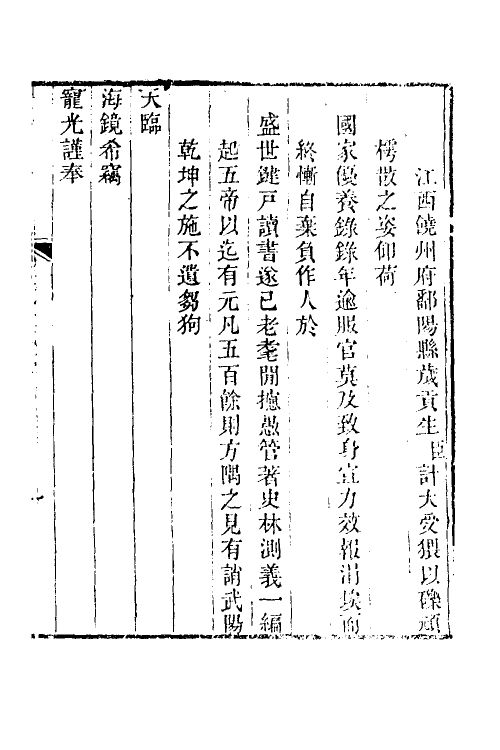 江西饒州府鄱陽縣歲貢生臣計大受猥以磔頑
樗散之姿仰荷
國家優養錄錄年逾服官莫及致身宣力效報涓埃向
終慚自棄負作人於
盛世鍵戸讀書遂已老耄閒攄愚管著史林測義一編
起五帝以迄有元凡五百餘則方隅之見有誚武陽
乾坤之施不遺芻狗
天臨
海鏡希竊
寵光謹奉